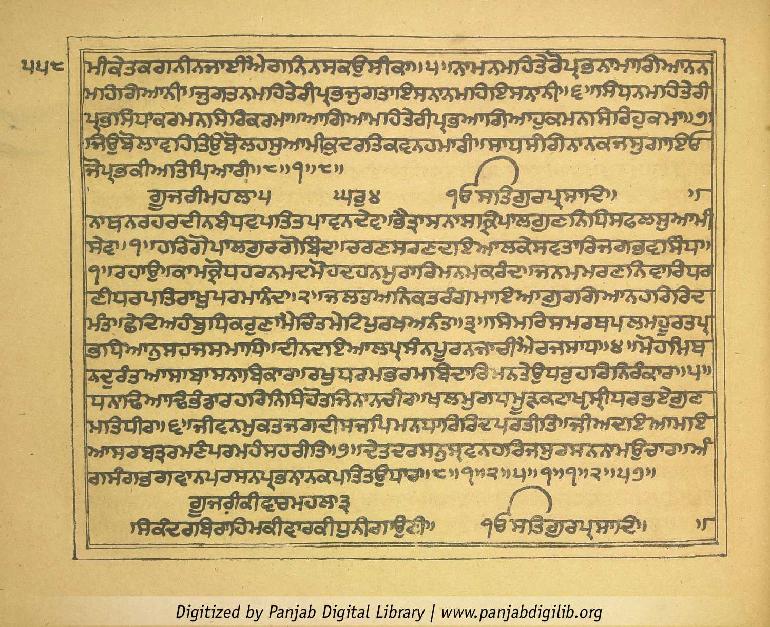 ੫੫੮ ਮੀਕੇਤਕਗਨੀਨਜਾਈਐਗਨਿਨਸਕਉਸੀਕਾ॥੫॥ਨਾਮਨਮਹਿਤੇਰੋਪ੍ਰਭਨਾਮਾਗਿਆਨਨ
ਮਹਿਗਿਆਨੀ॥ਜੁਗਤਨਮਹਿਤੇਰੀਪ੍ਰਭਜੁਗਤਾਇਸਨਾਨਨਮਹਿਇਸਨਾਨੀ॥੬॥ਸਿਧਨਮਹਿਤੇਰੀ
ਪ੍ਰਭਸਿਧਾਕਰਮਨਸਿਰਿਕਰਮਾ॥ਆਗਿਆਮਹਿਤੇਰੀਪ੍ਰਭਆਗਿਆਹੁਕਮਨਸਿਰਿਹੁਕਮਾ॥੭॥
ਜਿਉਬੋਲਾਵਹਿਤਿਉਬੋਲਹਸੁਆਮੀਕੁਦਰਤਿਕਵਨਹਮਾਰੀ॥ਸਾਧਸੰਗਿਨਾਨਕਜਸੁਗਾਇਓ
ਜੋਪ੍ਰਭਕੀਅਤਿਪਿਆਰੀ॥੮॥੧॥੮॥
ਗੂਜਰੀਮਹਲਾ੫ ਘਰੁ੪ ੴਸਤਿਗੁਰਪ੍ਰਸਾਦਿ॥
ਨਾਥਨਰਹਰਦੀਨਬੰਧਵਪਤਿਤਪਾਵਨਦੇਵ॥ਭੈਤ੍ਰਾਸਨਾਸਕ੍ਰਿਪਾਲਗੁਣਨਿਧਿਸਫਲਸੁਆਮੀ
ਸੇਵ॥੧॥ਹਰਿਗੋਪਾਲਗੁਰਗੋਬਿੰਦ॥ਚਰਣਸਰਣਦਇਆਲਕੇਸਵਤਾਰਿਜਗਭਵਸਿੰਧ॥
੧॥ਰਹਾਉ॥ਕਾਮਕ੍ਰੋਧਹਰਨਮਦਮੋਹਦਹਨਮੁਰਾਰਿਮਨਮਕਰੰਦ॥ਜਨਮਮਰਣਨਿਵਾਰਿਧਰ
ਣੀਧਰਪਤਿਰਾਖੁਪਰਮਾਨੰਦ॥੨॥ਜਲਤਅਨਿਕਤਰੰਗਮਾਇਆਗੁਰਗਿਆਨਹਰਿਰਿਦ
ਮੰਤ॥ਛੇਦਿਅਹੰਬੁਧਿਕਰੁਣਾਮੈਚਿੰਤਮੇਟਿਪੁਰਖਅਨੰਤ॥੩॥ਸਿਮਰਿਸਮਰਥਪਲਮਹੂਰਤਪ੍ਰ
ਭਧਿਆਨੁਸਹਜਸਮਾਧਿ॥ਦੀਨਦਇਆਲਪ੍ਰਸੰਨਪੂਰਨਜਾਚੀਐਰਜਸਾਧ॥੪॥ਮੋਹਮਿਥ
ਨਦੁਰੰਤਆਸਾਬਾਸਨਾਬਿਕਾਰ॥ਰਖੁਧਰਮਭਰਮਬਿਦਾਰਿਮਨਤੇਉਧਰੁਹਰਿਨਿਰੰਕਾਰ॥੫॥
ਧਨਾਢਿਆਢਿਭੰਡਾਰਹਰਿਨਿਧਿਹੋਤਜਿਨਾਨਚੀਰ॥ਖਲਮੁਗਧਮੂੜਕਟਾਖ੍ਯਸ੍ਰੀਧਰਭਏਗੁਣ
ਮਤਿਧੀਰ॥੬॥ਜੀਵਨਮੁਕਤਜਗਦੀਸਜਪਿਮਨਧਾਰਿਰਿਦਪਰਤੀਤਿ॥ਜੀਅਦਇਆਮਇ
ਆਸਰਬਤ੍ਰਰਮਣੰਪਰਮਹੰਸਹਰੀਤਿ॥੭॥ਦੇਤਦਰਸਨੁਸ੍ਰਵਨਹਰਿਜਸੁਰਸਨਨਾਮਉਚਾਰ॥ਅੰ
ਗਸੰਗਭਗਵਾਨਪਰਸਨਪ੍ਰਭਨਾਨਕਪਤਿਤਉਧਾਰ॥੮॥੧॥੨॥੫॥੧॥੧॥੨॥੫੭॥
ਗੂਜਰੀਕੀਵਾਰਮਹਲਾ੩
ਸਿਕੰਦਰਬਿਰਾਹਿਮਕੀਵਾਰਕੀਧੁਨੀਗਾਉਣੀ॥ ੴਸਤਿਗੁਰਪ੍ਰਸਾਦਿ॥
Digitized by Panjab Digital Library | www.panjabdigilib.org